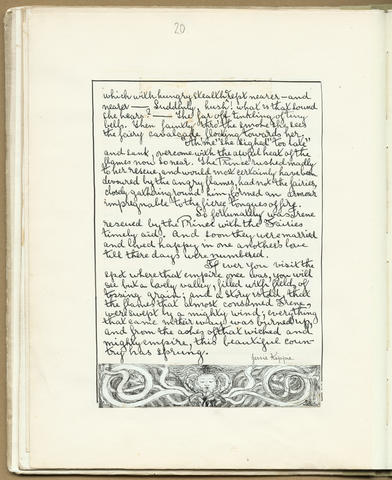 20
which with hungry stealth crept nearer - and
nearer —. Suddenly, hush! what is that sound
she hears? — The far off tinkling of tiny
bells. Then faintly thro the smoke she sees
the fairy cavalcade flocking towards her.
"Oh me" she sighed "too late"
and sank, overcome with the awful heat of the
flames now so near. The Prince rushed madly
to her rescue, and would most certainly have been
devoured by the angry flames, had not the fairies,
closely gathering round him formed an armour
impregnable to the fierce tongues of fire.
So fortunately was Irene
rescued by the Prince with the Fairies
timely aid. And soon they were married
and lived happy in one another's love
till there days were numbered.
If ever you visit the
spot where that empire once was, you will
see but a lovely valley, filled with fields of
tossing grain; and a story is told, that
the flames that almost consumed Irene,
were swept by a mighty wind; everything
that came in their way was burned up
and from the ashes of that wicked and
mighty empire, this beautiful coun-
try has sprung.
Jessie Keppe